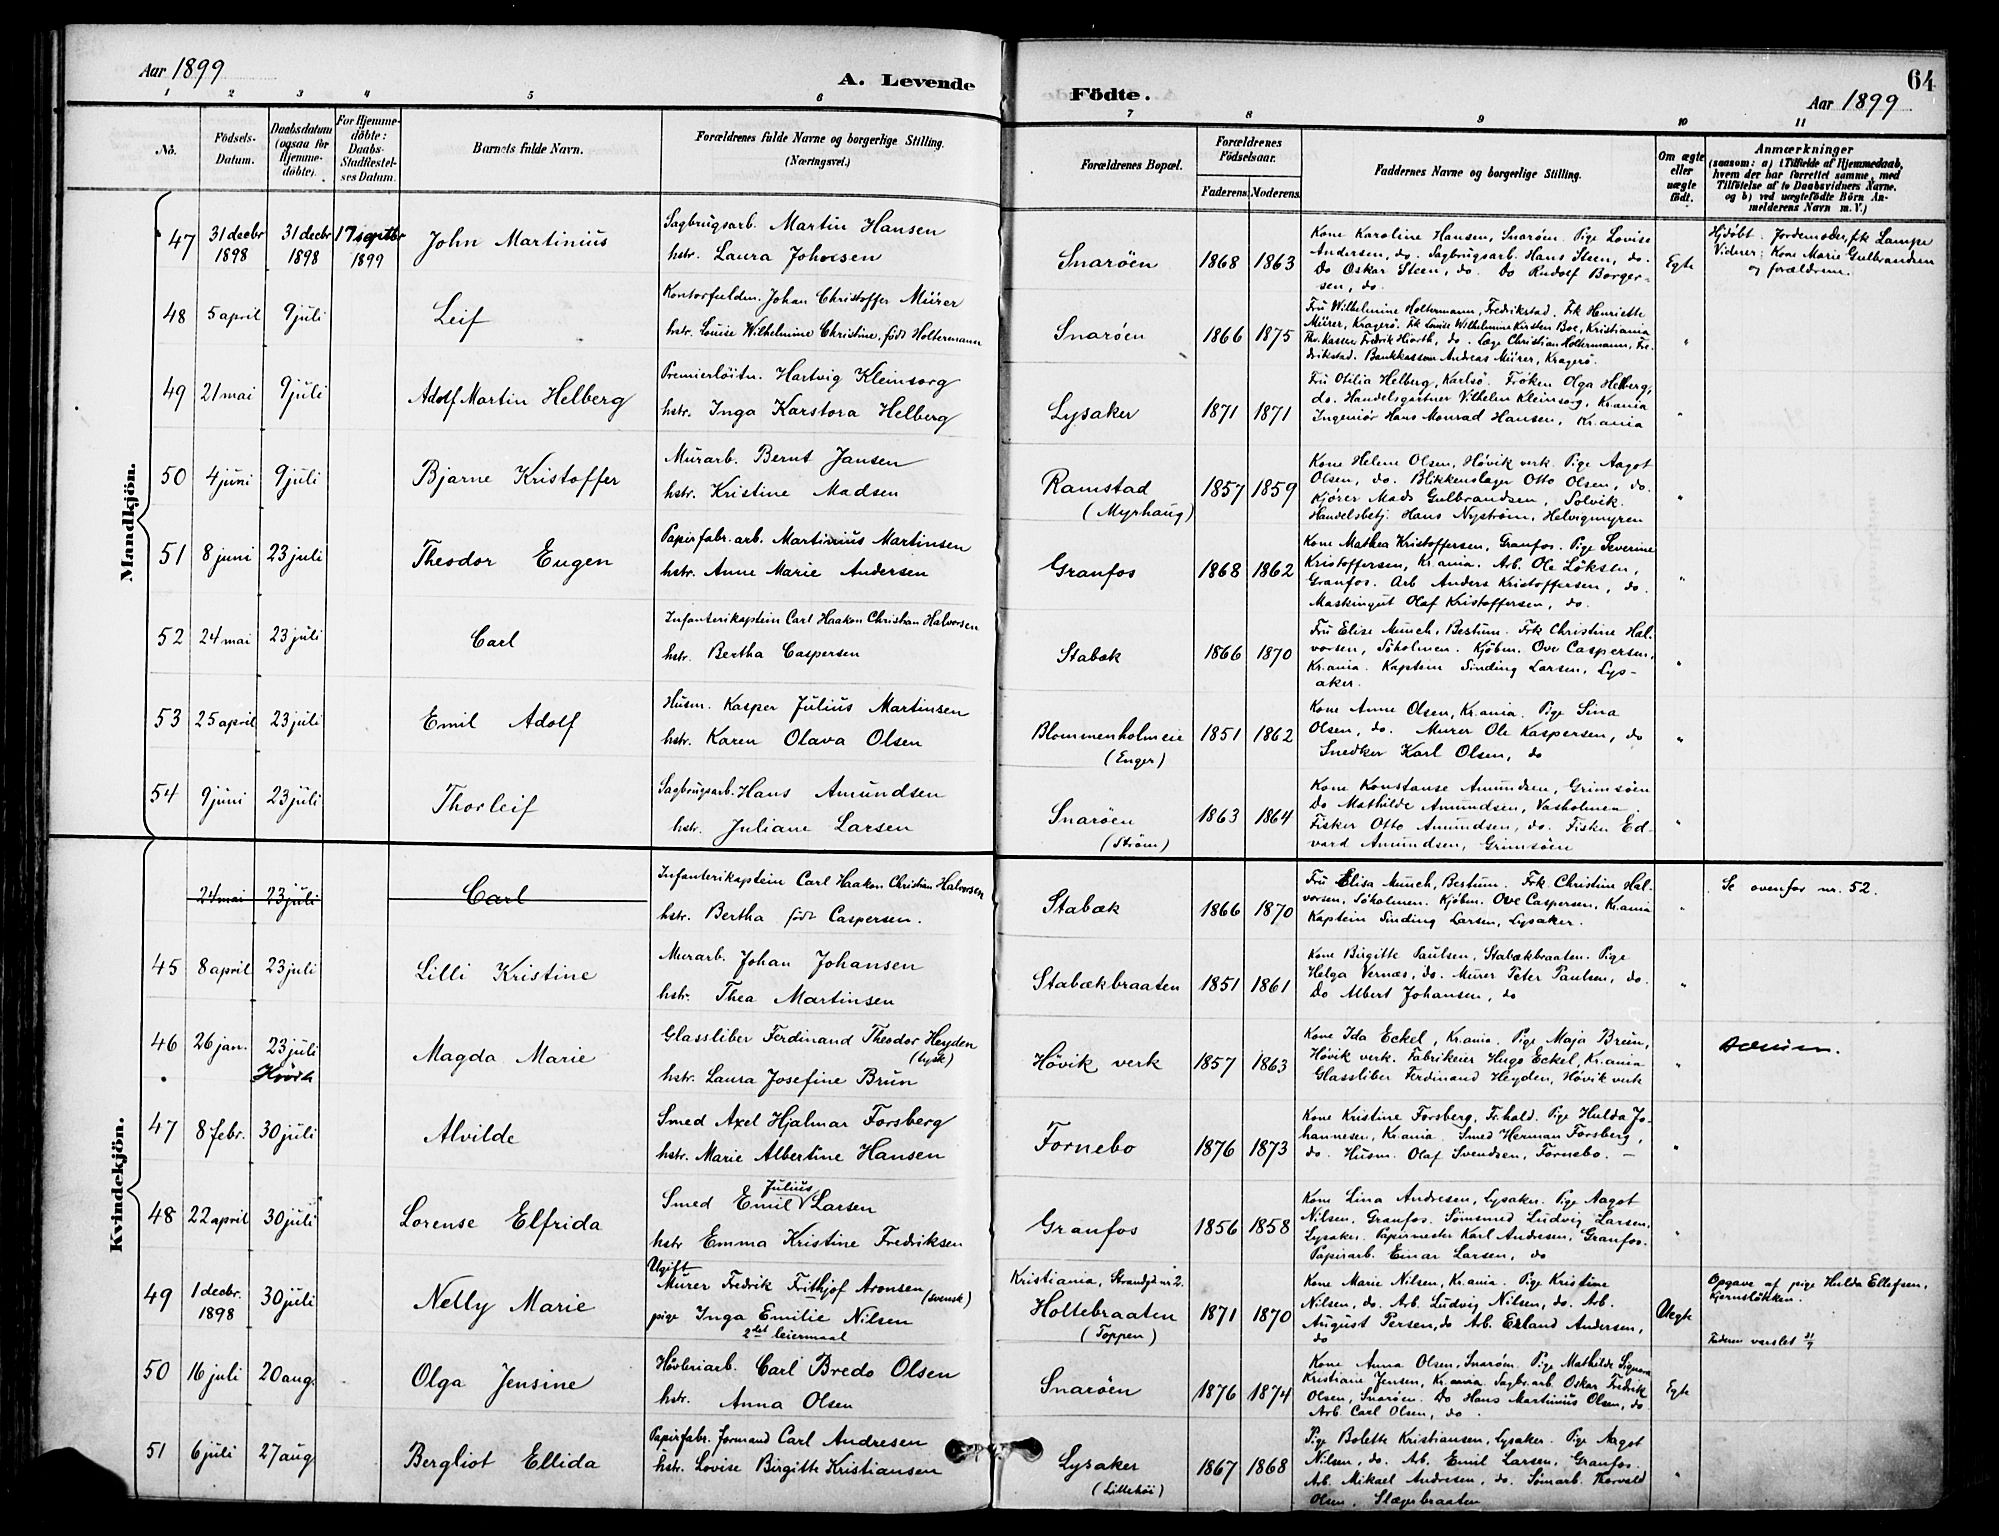 Aar 1899
A. Levende
Födte.
64
Aar 1899
1 2 3 4 5 6 7 8 9 10 11
No.
Födsels-
Datum.
Daabsdatum
(ogsaa for
Hjemme-
döbte).
For Hjemme-
döbte:
Daabs-
Stadfæstel-
ses Datum.
Barnets fulde Navn.
Forældrenes fulde Navne og borgerlige Stilling.
(Næringsvei.)
Forældrenes Bopæl.
Forældrenes
Födselsaar.
Faderens. Moderens.
Faddernes Navne og borgerlige Stilling.
Om ægte
eller
uægte
födt.
Anmærkninger
(saasom: a) i Tilfælde af Hjemmedaab,
hvem der har forrettet samme, med
Tilföielse af to Daabsvidners Navne.
og b) ved uægtefödte Börn An-
melderens Navn m. V.)
Mandkjön.
47 31 decbr 1898 31 decbr 1898 17 septbr 1899 John Martinius
Sagbrugsarb. Martin Hansen
hstr. Laura Johnsen
Snarøen 1868 1863
Kone Karoline Hansen, Snarøen. Pige Lovise
Andersen, do. Sagbrugsarb. Hans Steen, do.
Do Oskar Steen, do. Do Rudolf Borger-
sen, do.
Egte
Hjdøbt. Jordemoder, frk Lampe
Vidner: Kone Marie Gulbrandsen
og forældrene.
48 5 april 9 juli Leif
Kontorfuldm. Johan Christoffer Mürer
hstr. Louise Wilhelmine Christine, født Holtermann
Snarøen 1866 1875
Fru Wilhelmine Holtermann, Fredrikstad. Frk Henriette
Mürer, Kragerø. Frk Louise Wilhelmine Kirsten Boe, Kristiania
Kasser Fredrik Hiorth, do. Læge Christian Holtermann, Fre-
drikstad. Bankkasserer Andreas Mürer, Kragerø.
"
49 21 mai 9 juli Adolf Martin Helberg
Premierløitn. Hartvig Kleinsorg
hstr. Inga Karstora Helberg
Lysaker 1871 1871
Fru Otilia Helberg, Karlsö. Frøken Olga Helberg,
do. Handelsgartner Vilhelm Kleinsorg, Kr.ania
Ingeniør Hans Monrad Hansen, Kr.ania
"
50 4 juni 9 juli Bjarne Kristoffer
Murarb. Bernt Jansen
hstr. Kristine Madsen
Ramstad
(Myrhaug)
1857 1859
Kone Helene Olsen, Høvik verk. Pige Aagot
Olsen, do. Blikkenslager Otto Olsen, do.
Kjører Mads Gulbrandsen, Solvik.
Handelsbetj. Hans Nystrøm, Helvigmyren
"
51 8 juni 23 juli Theodor Eugen
Papirfabr. arb. Martinius Martinsen
hstr. Anne Marie Andersen
Granfos 1868 1862
Kone Mathea Kristoffersen, Granfos. Pige Severine
Kristoffersen, Kr.ania. Arb. Ole Løksen,
Granfos. Arb Anders Kristoffersen, do.
Maskingut Olaf Kristoffersen, do.
"
52 24 mai 23 juli Carl
Infanterikaptein Carl Haakon Christian Halvorsen
hstr. Bertha Caspersen
Stabæk 1866 1870
Fru Elise Munch, Bestum. Frk Christine Hal-
vorsen, Søholmen. Kjøbm. Ove Caspersen,
Kr.ania. Kaptein Sinding Larsen, Lys-
aker.
"
53 25 april 23 juli Emil Adolf
Husm. Kasper Julius Martinsen
hstr. Karen Olava Olsen
Blommenholmeie
(Enger)
1851 1862
Kone Anne Olsen, Kr.ania. Pige Sina
Olsen, do. Murer Ole Kaspersen, do
Snedker Karl Olsen, do
"
54 9 juni 23 juli Thorleif
Sagbrugsarb. Hans Amundsen
hstr. Juliane Larsen
Snarøen
(Strøm)
1863 1864
Kone Konstanse Amundsen, Grimsøen
Do Mathilde Amundsen, Vasholmen.
Fisker Otto Amundsen, do. Fisker Ed-
vard Amundsen, Grimsøen
"
Kvindekjön.
24 mai 23 juli Carl
Infanterikaptein Carl Haakon Christian Halvorsen
hstr. Bertha født Caspersen.
Stabæk 1866 1870
Fru Elisa Munch, Bestum. Frk Christine Hal-
vorsen, Søholmen. Kjøbm. Ove Caspersen, Kr.ania
Kaptein Sinding Larsen, Lysaker.
"
Se ovenfor nr. 52.
45 8 april 23 juli Lilli Kristine
Murarb. Johan Johansen
hstr. Thea Martinsen
Stabækbraaten 1851 1861
Kone Birgitte Paulsen, Stabækbraaten. Pige
Helga Vernæs, do. Murer Peter Paulsen, do.
Do Albert Johansen, do
"
46 26 jan. 23 juli Magda Marie
Glassliber Ferdinand Theodor Heyden
(tysk)
hstr. Laura Josefine Brun
Høvik verk 1857 1863
Kone Ida Eckel, Kr.ania. Pige Maja Breim,
Høvik verk. Fabrikeier Hugo Eckel, Kr.ania
Glassliber Ferdinand Heyden, Høvik verk
"
47 8 febr. 30 juli Alvilde
Smed Axel Hjalmar Forsberg
hstr. Marie Albertine Hansen
Fornebo 1876 1873
Kone Kristine Forsberg, Fr.hald. Pige Hulda Jo-
hannesen, Kr.ania. Smed Herman Forsberg,
do. Husm. Olaf Svendsen, Fornebo. —
"
48 22 april 30 juli Lorense Elfrida
Smed Emil Julius Larsen
hstr Emma Kristine Fredriksen
Granfos 1856 1858
Kone Lina Andresen, Lysaker. Pige Aagot
Nilsen, Granfos. Sømsmed Ludvig Larsen,
Lysaker. Papirmester Karl Andresen, Granfos.
Papirarb. Einar Larsen, do
"
49 1 decbr. 1898 30 juli Nelly Marie
Ugift
Murer Fredrik Frithjof Aronsen (svensk)
pige Inga Emilie Nilsen
2det leiermaal
Kristiania, Strandgd nr 2.
Holtebraaten
(Toppen)
1871 1870
Kone Marie Nilsen, Kr.ania. Pige Kristine
Nilsen, do. Arb. Ludvig Nilsen, do. Arb.
August Persen, do Arb. Erland Andersen,
do
Uegte
Opgave af pige Hulda Ellefsen,
Faderen varslet 31/7
50 16 juli 20 aug. Olga Jensine
Høvleriarb. Carl Bredo Olsen
hstr. Anna Olsen
Snarøen 1876 1874
Kone Anna Olsen, Snarøen. Pige Mathilde Signora
Kristiane Jensen, Kr.ania. Sagbr.arb. Oskar Fredrik
Olsen, Snarøen. Do Hans Martinius Olsen, do
Arb. Carl Olsen, do.
Egte
51 6 juli 27 aug Bergliot Ellida
Papirfabr. formand Carl Andresen
hstr. Lovise Birgitte Kristiansen
Lysaker
(Lillehöi)
1867 1868
Pige Bolette Kristiansen, Lysaker. Pige Aagot
Nilsen, do. Arb. Emil Larsen, Granfos.
Arb. Mikael Andresen, do. Sømarb. Thorvald
Olsen,
"